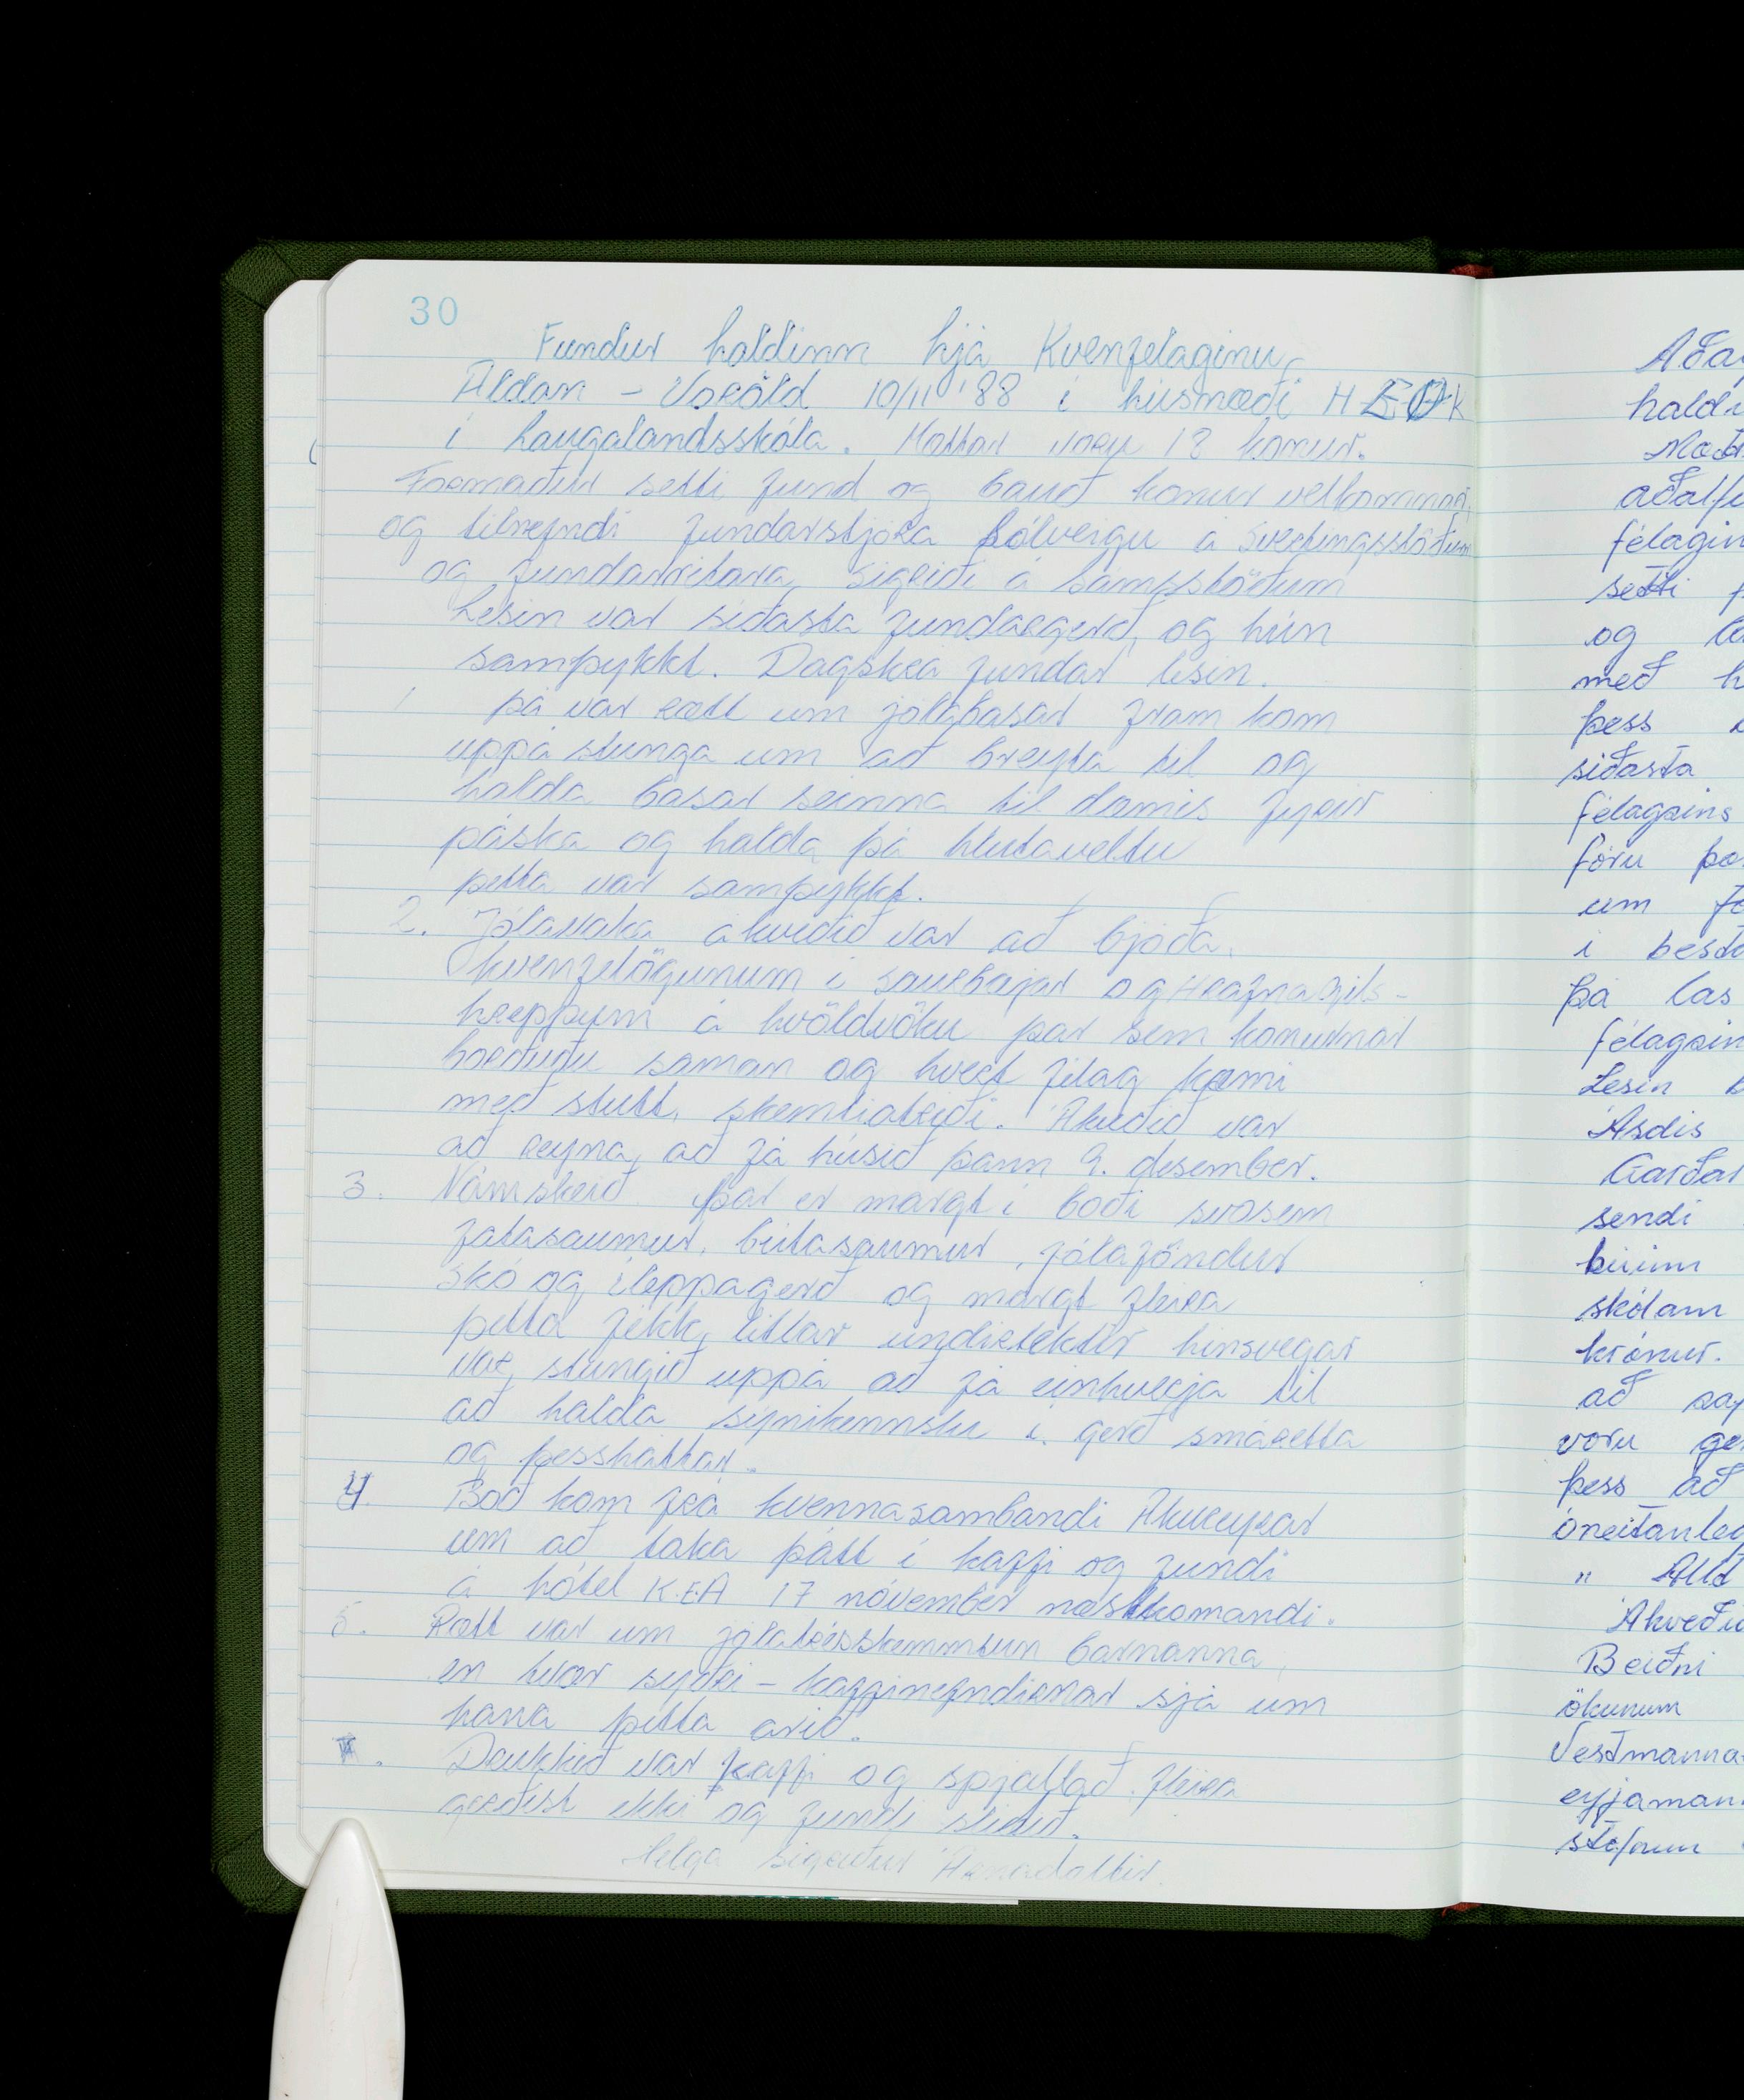 30
Fundur haldinn hjá Kvenfelaginu
Aldan - Voröld 10/11 '88 í húsnæði
í Laugalandsskóla. Mættar voru 18 konur.
Formaður setti fund og bauð konur velkomnar
og tilnefndi fundarstjóra Sólveigu á Sveitingsstöðum
og fundarritara, Sigríði á Sámsstöðum
Lesin var síðasta fundargerð, og hún
samþykkt. Dagskrá fundar lesin.
1 Þá var rætt um jólabasar fram kom
uppá stunga um að breyta til og
halda basar seinna til dæmis fyrir
páska og halda þá hlutaveltu
þetta var samþykkt.
2. Jólavaka ákveðið var að bjóða
kvenfelögunum í saurbæjar og Hrafnagils-
hreppum á kvöldvöku þar sem konurnar
borðuðu saman og hvert félag kæmi
með stutt, skemtiatriði. Ákveðið var
að reyna, að fá húsið þann 9. desember.
3. Námskeið þar er margt í boði svosem
fatasaumur, bútasaumur, jólaföndur
skó og íleppagerð og margt fleira
þetta fékk, litlar undirtektir hinsvegar
var, stungið uppá að fá einhverja til
að halda sýnikennslu í gerð smáretta
og þessháttar.
4. Boð kom frá kvennasambandi Akureyrar
um að taka þátt í kaffi og fundi
á hótel K.E.A 17 nóvember næstkomandi.
5. Rætt var um jólatrésskemmtun barnanna,
en hvor syðri - kaffinefndirnar sjá um
hana þetta árið.
Drukkið var kaffi og spjallað fleira
gerðist ekki og fundi slitið.
Helga Sigríður Árnadóttir
Aða
hald
Mæt
aðalf
félagin
setti f
og
með h
þess
síðasta
félagsins
fóru þa
um
í besta
Þá las
félagsin
Lesin b
Ásdís
Garðar
sendi
búinn
skólam
krónur.
að
voru ge
þess að
óneitanleg
" Allt
Ákveði
Beiðni
ökunum
Vestmanna
eyjaman